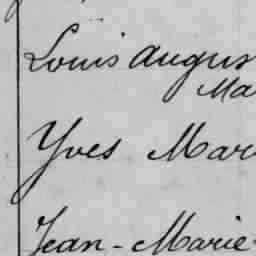 Louis Augus
Ma
Yves Mar
Jean-Marie-